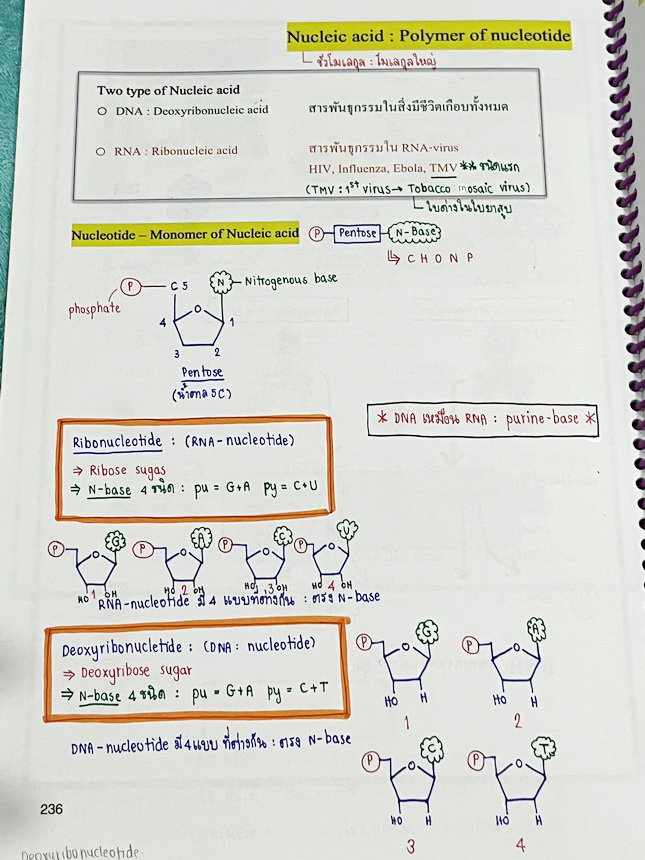 Nucleic acid : Polymer of nucleotide
ชีวโมเลกุล : โมเลกุลใหญ่
Two type of Nucleic acid
DNA : Deoxyribonucleic acid สารพันธุกรรมในสิ่งมีชีวิตเกือบทั้งหมด
RNA : Ribonucleic acid สารพันธุกรรมใน RNA-virus
HIV, Influenza, Ebola, TMV ** ชนิดแรก
(TMV : 1st virus → Tobacco mosaic virus)
ใบด่างในใบยาสูบ
Nucleotide – Monomer of Nucleic acid P Pentose N-Base
↳ C H O N P
P C 5 N Nitrogenous base
phosphate
O
4 1
3 2
Pentose
(น้ำตาล 5C)
* DNA เหมือน RNA : purine-base *
Ribonucleotide : (RNA-nucleotide)
⇒ Ribose sugas
⇒ N-base 4 ชนิด : pu = G+A py = C+U
P O G P O A P O C P O U
HO 1 OH HO 2 OH HO 3 OH HO 4 OH
RNA-nucleotide มี 4 แบบที่ต่างกัน : ตรง N-base
Deoxyribonucletide : (DNA : nucleotide)
⇒ Deoxyribose sugar
⇒ N-base 4 ชนิด : pu = G+A py = C+T
P O G P O A
HO H HO H
1 2
DNA-nucleotide มี 4 แบบ ที่ต่างกัน : ตรง N-base
P O C P O T
HO H HO H
3 4
236
Deoxyribonucleotide.